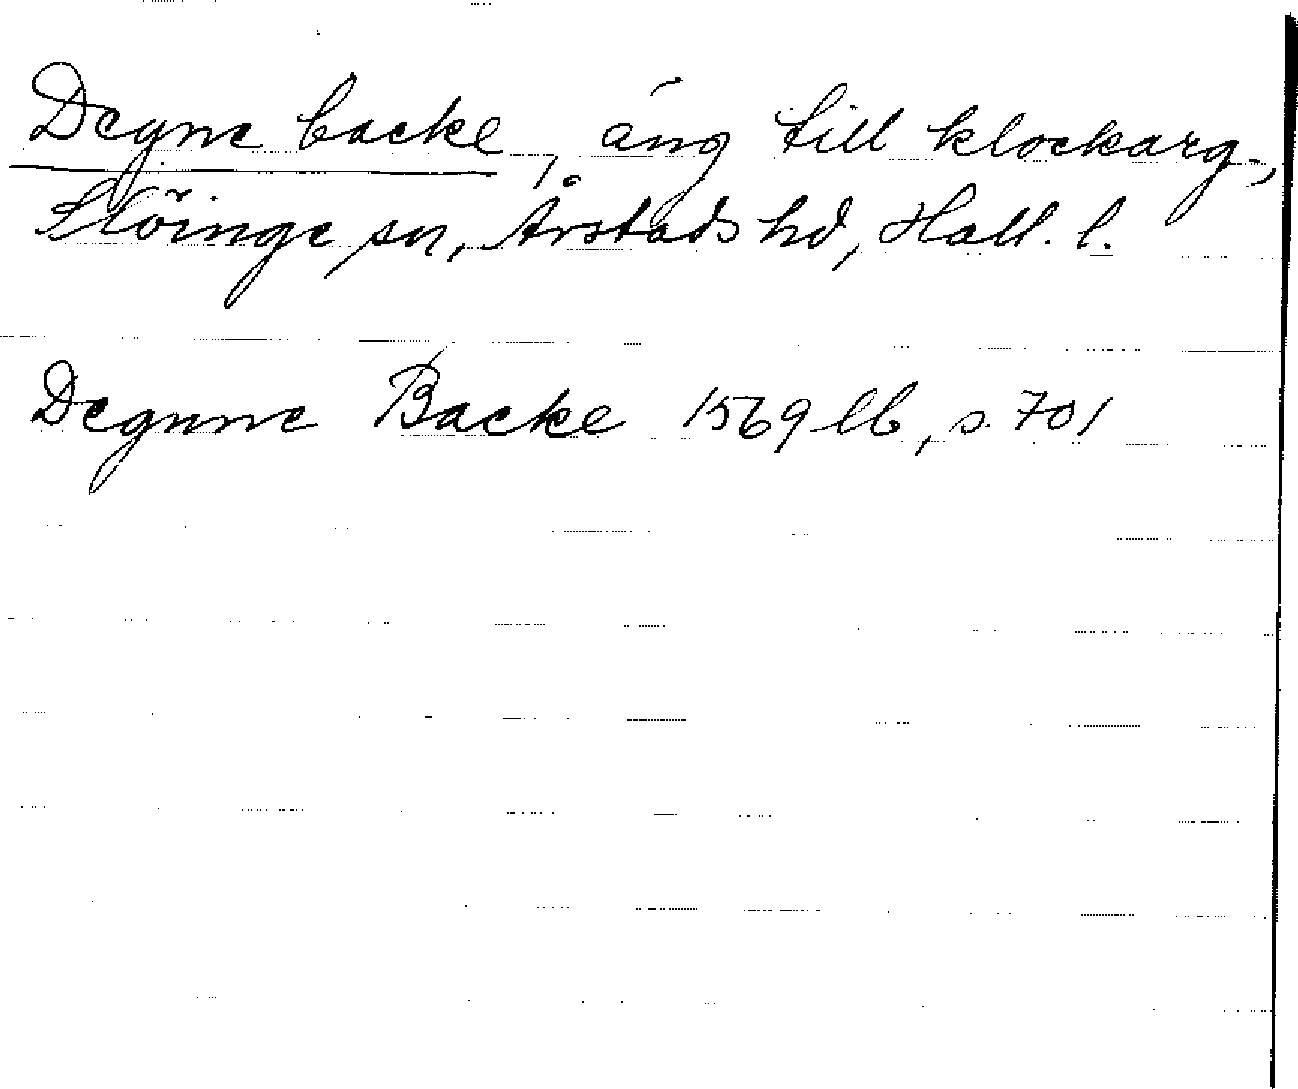 Degne backe, äng till klockarg.,
Slöinge sn, Årstads hd, Hall. l.
Degnne Backe 1569 lb, s. 701